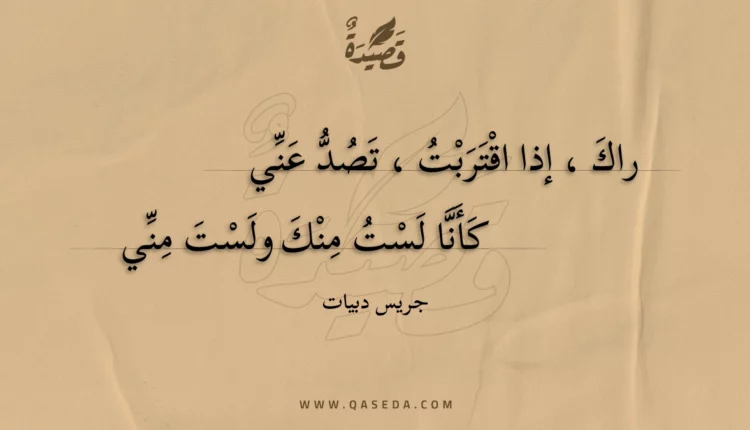 قَصِيْدَةٌ
راكَ ، إذا اقْتَرَبْتُ ، تَصُدُّ عَنِّي
كَأَنَّا لَسْتُ مِنْكَ ولَسْتَ مِنِّي
جريس دبيات
WWW.QASEDA.COM